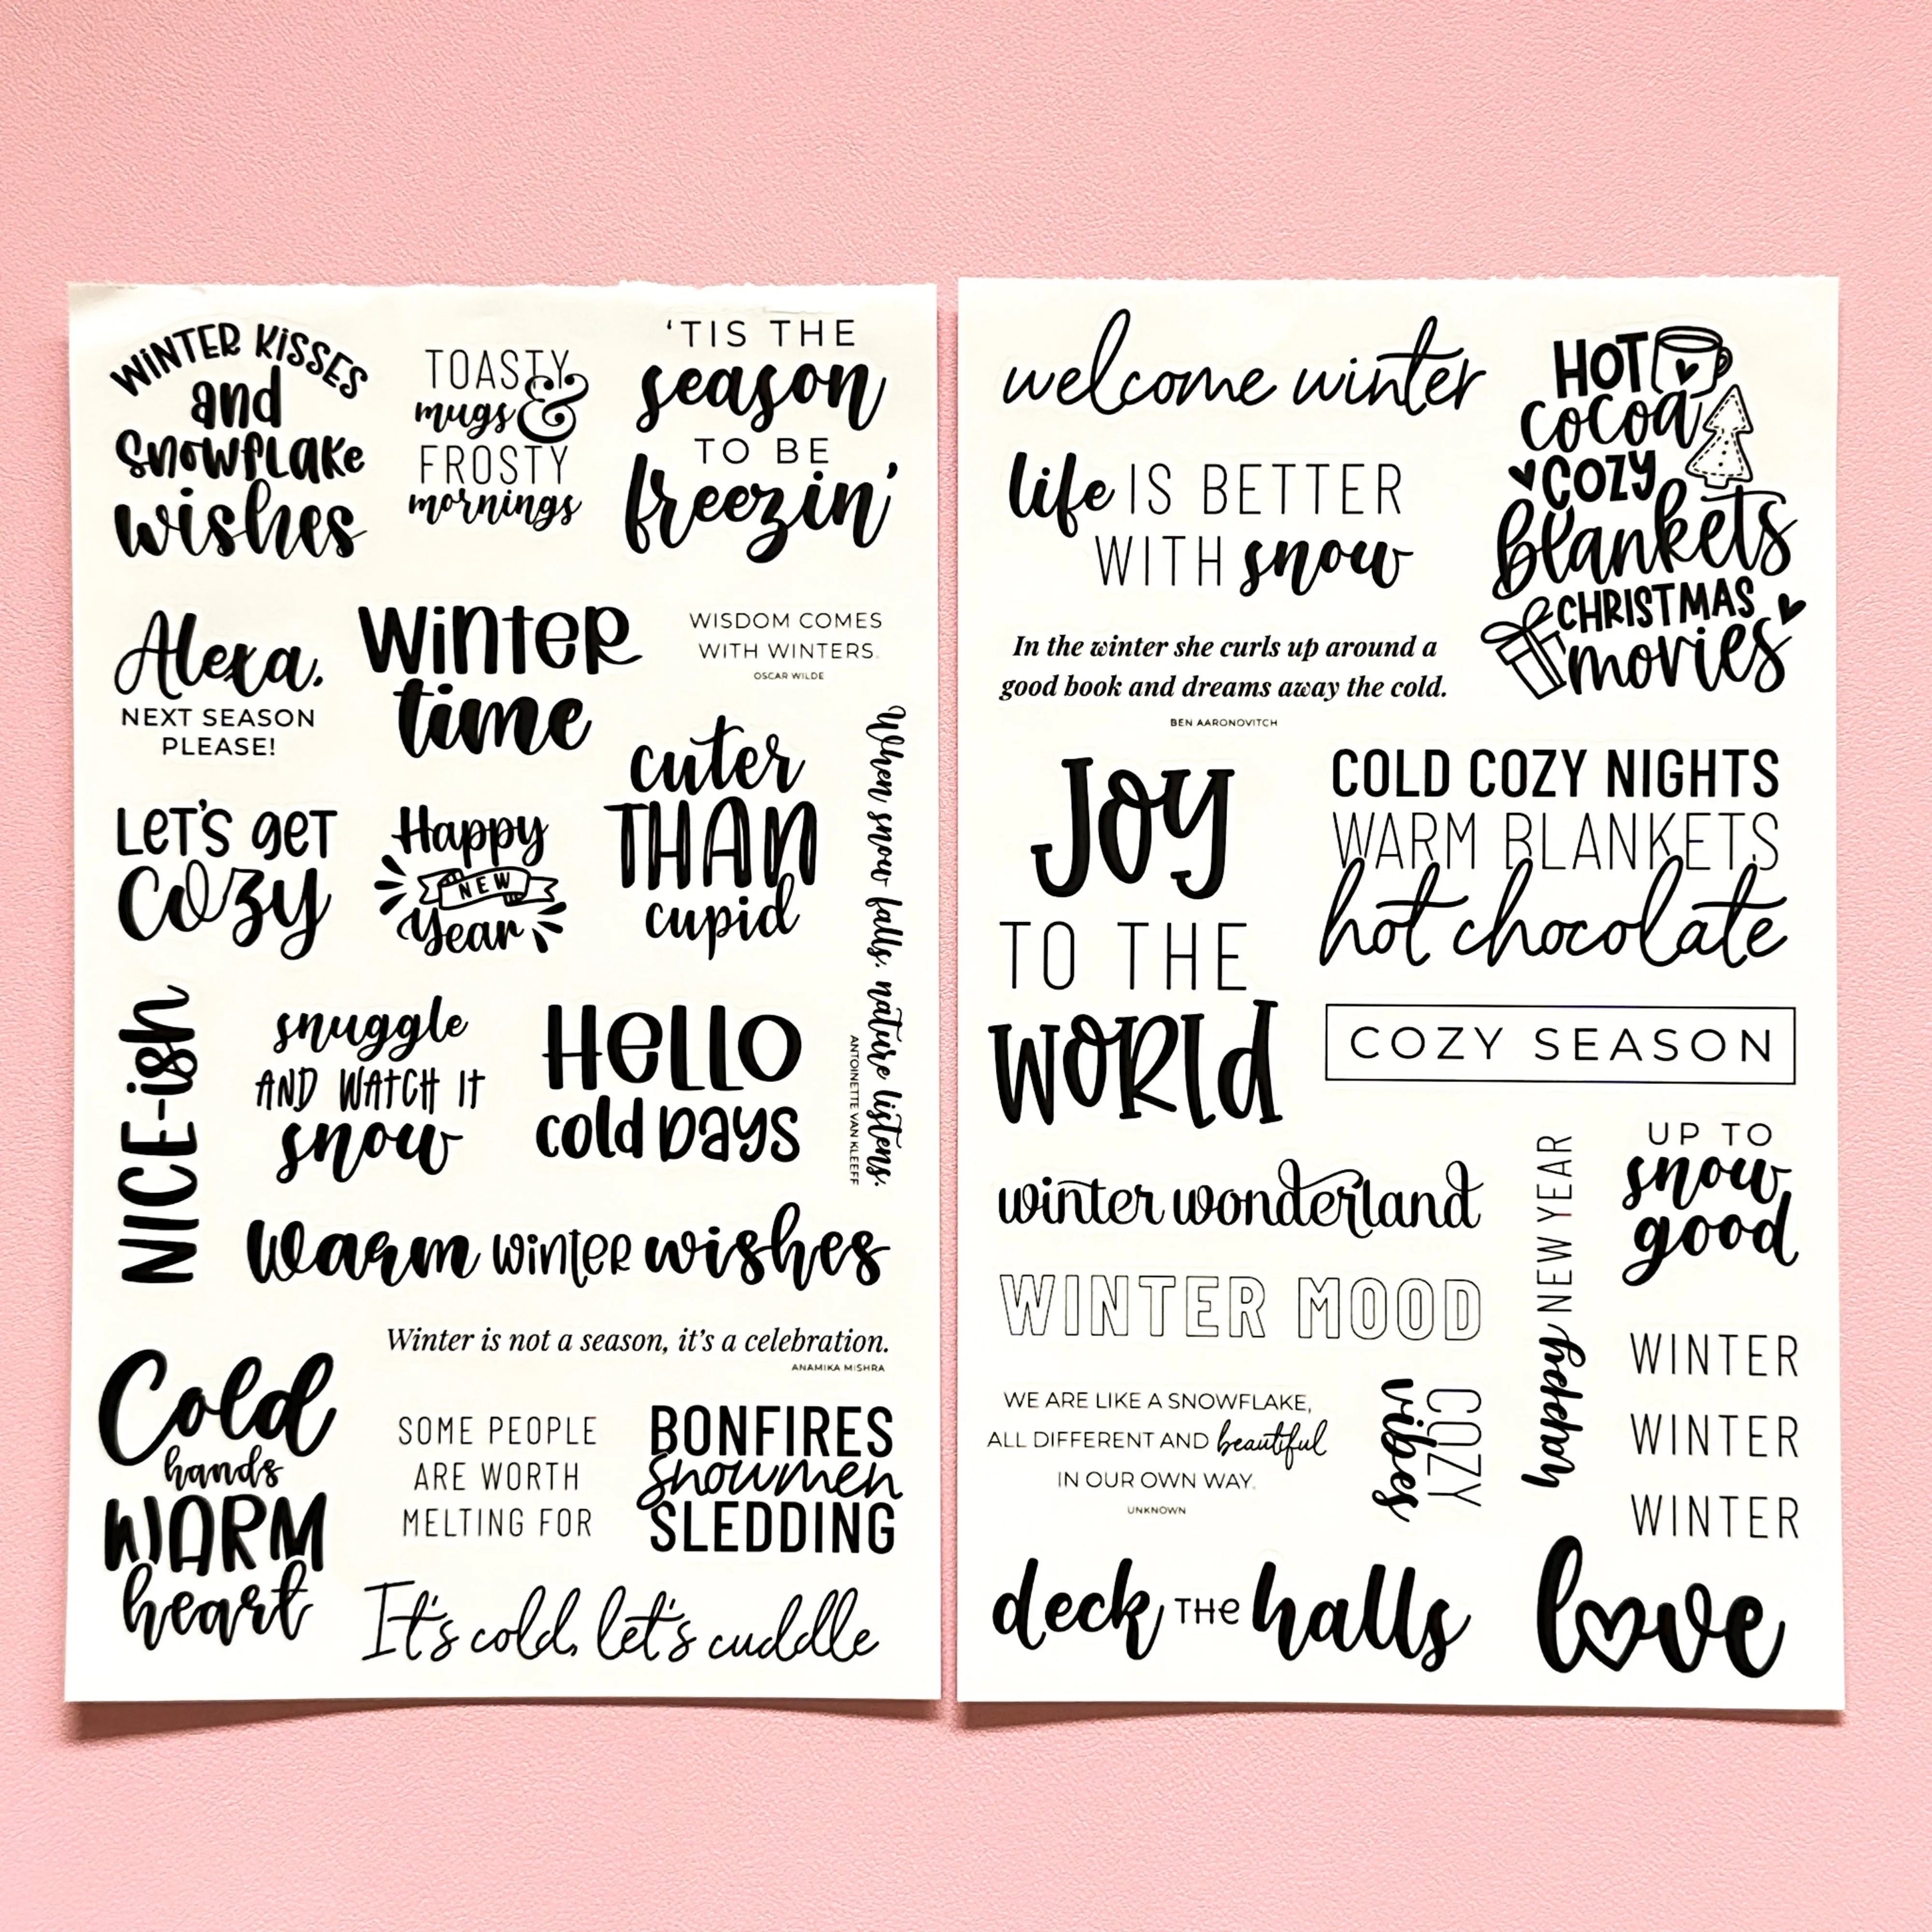 WINTER KISSES
and
SNOWFLAKE
wishes
TOASTY
mugs &
FROSTY
mornings
'TIS THE
season
TO BE
freezin'
Alexa,
NEXT SEASON
PLEASE!
WINTER
time
WISDOM COMES
WITH WINTERS.
OSCAR WILDE
LET'S GET
cozy
Happy
NEW
Year
cuter
THAN
cupid
When snow falls, nature listens.
ANTOINETTE VAN KLEEFF
NICE-ish
snuggle
AND WATCH IT
snow
HELLO
cold DAYS
warm WINTER wishes
Winter is not a season, it's a celebration.
ANAMIKA MISHRA
Cold
hands
WARM
heart
SOME PEOPLE
ARE WORTH
MELTING FOR
BONFIRES
snowmen
SLEDDING
It's cold, let's cuddle
welcome winter
HOT
cocoa
COZY
blankets
CHRISTMAS
movies
life IS BETTER
WITH snow
In the winter she curls up around a
good book and dreams away the cold.
BEN AARONOVITCH
JOY
TO THE
WORLD
COLD COZY NIGHTS
WARM BLANKETS
hot chocolate
COZY SEASON
winter wonderland
happy NEW YEAR
UP TO
snow
good
WINTER MOOD
WE ARE LIKE A SNOWFLAKE,
ALL DIFFERENT AND beautiful
IN OUR OWN WAY.
UNKNOWN
COZY
vibes
WINTER
WINTER
WINTER
deck THE halls
love